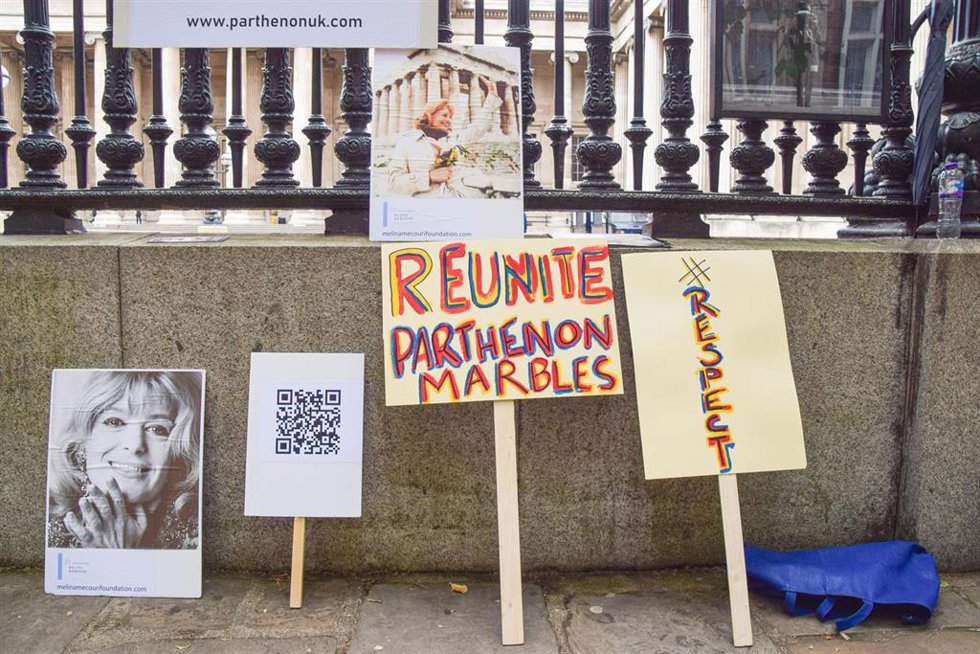 www.parthenonuk.com
melinamercourifoundation.com
REUNITE
PARTHENON
MARBLES
#RESPECT
melinamercourifoundation.com